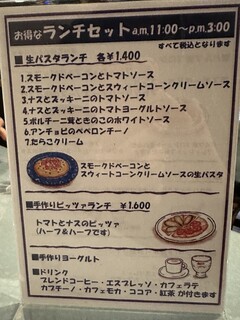 お得なランチセット a.m.11:00～p.m.3:00
すべて税込となります
■生パスタランチ 各¥1.400
1.スモークドベーコンとトマトソース
2.スモークドベーコンとスウィートコーンクリームソース
3.ナスとズッキーニのトマトソース
4.ナスとズッキーニのトマトヨーグルトソース
5.ポルチーニ茸ときのこのホワイトソース
6.アンチョビのペペロンチーノ
7.たらこクリーム
スモークドベーコンと
スウィートコーンクリームソースの生パスタ
■手作りピッツァランチ ¥1.600
トマトとナスのピッツァ
(ハーフ&ハーフです)
■手作りヨーグルト
■ドリンク
ブレンドコーヒー・エスプレッソ・カフェラテ
カプチーノ・カフェモカ・ココア・紅茶 が付きます